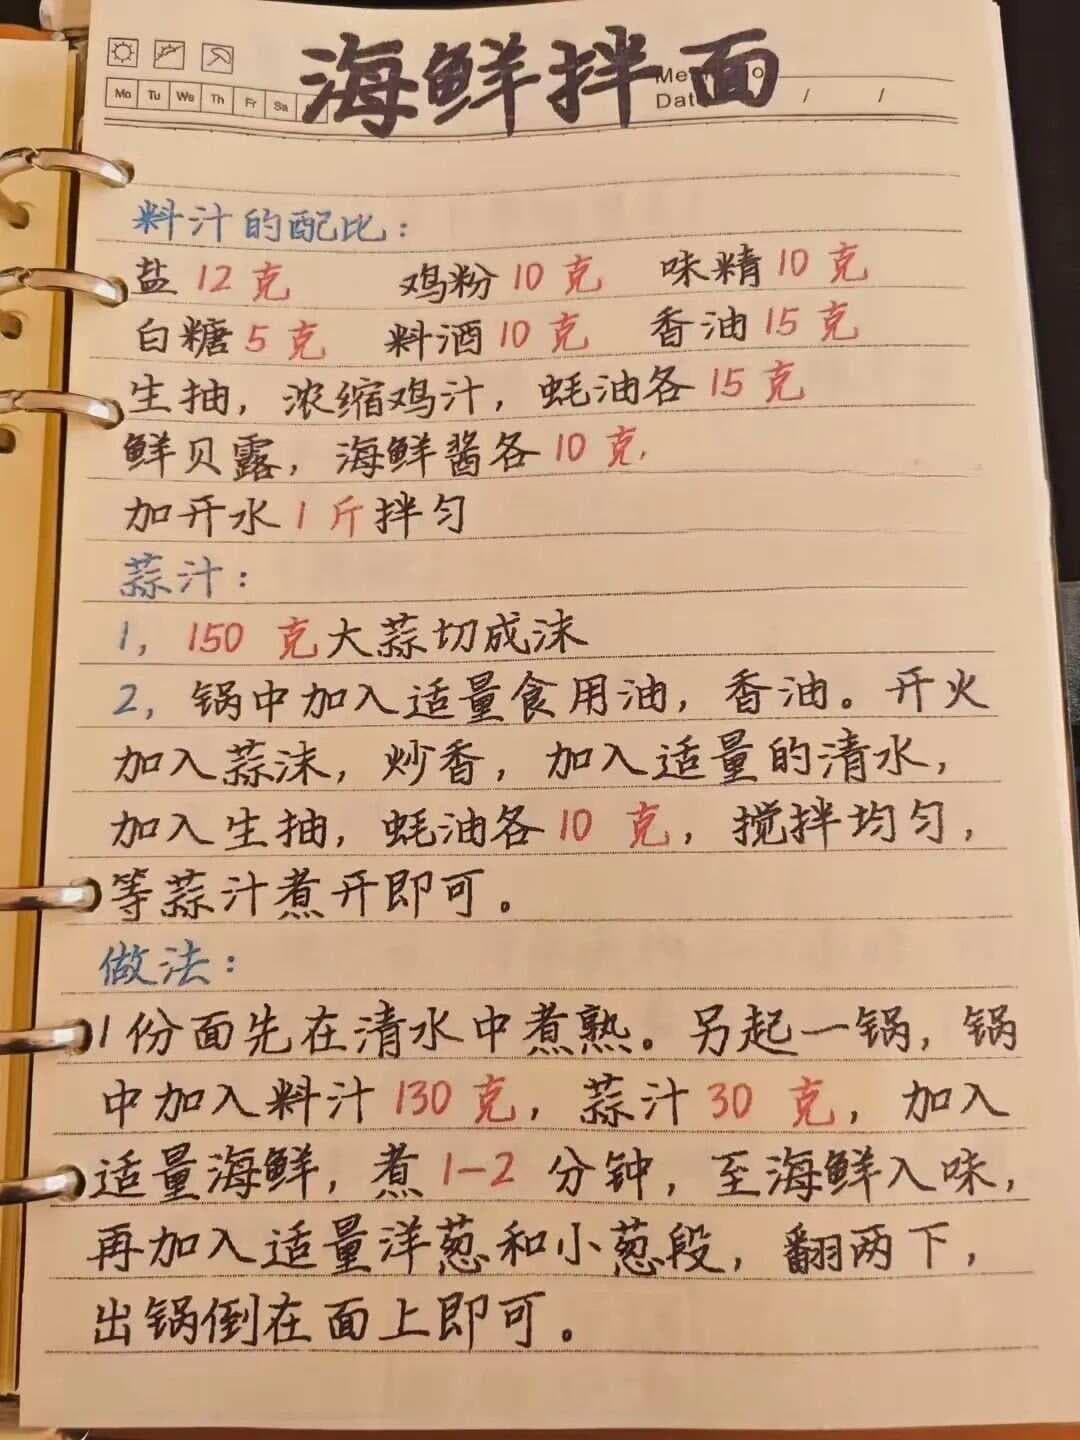 海鲜拌面
Mo Tu We Th Fr Sa
Dat / /
料汁的配比：
盐 12 克 鸡粉 10 克 味精 10 克
白糖 5 克 料酒 10 克 香油 15 克
生抽，浓缩鸡汁，蚝油各 15 克
鲜贝露，海鲜酱各 10 克.
加开水 1 斤 拌匀
蒜汁：
1，150 克大蒜切成沫
2，锅中加入适量食用油，香油。开火
加入蒜沫，炒香，加入适量的清水，
加入生抽，蚝油各 10 克，搅拌均匀，
等蒜汁煮开即可。
做法：
1份面先在清水中煮熟。另起一锅，锅
中加入料汁 130 克，蒜汁 30 克，加入
适量海鲜，煮 1-2 分钟，至海鲜入味，
再加入适量洋葱和小葱段，翻两下，
出锅倒在面上即可。